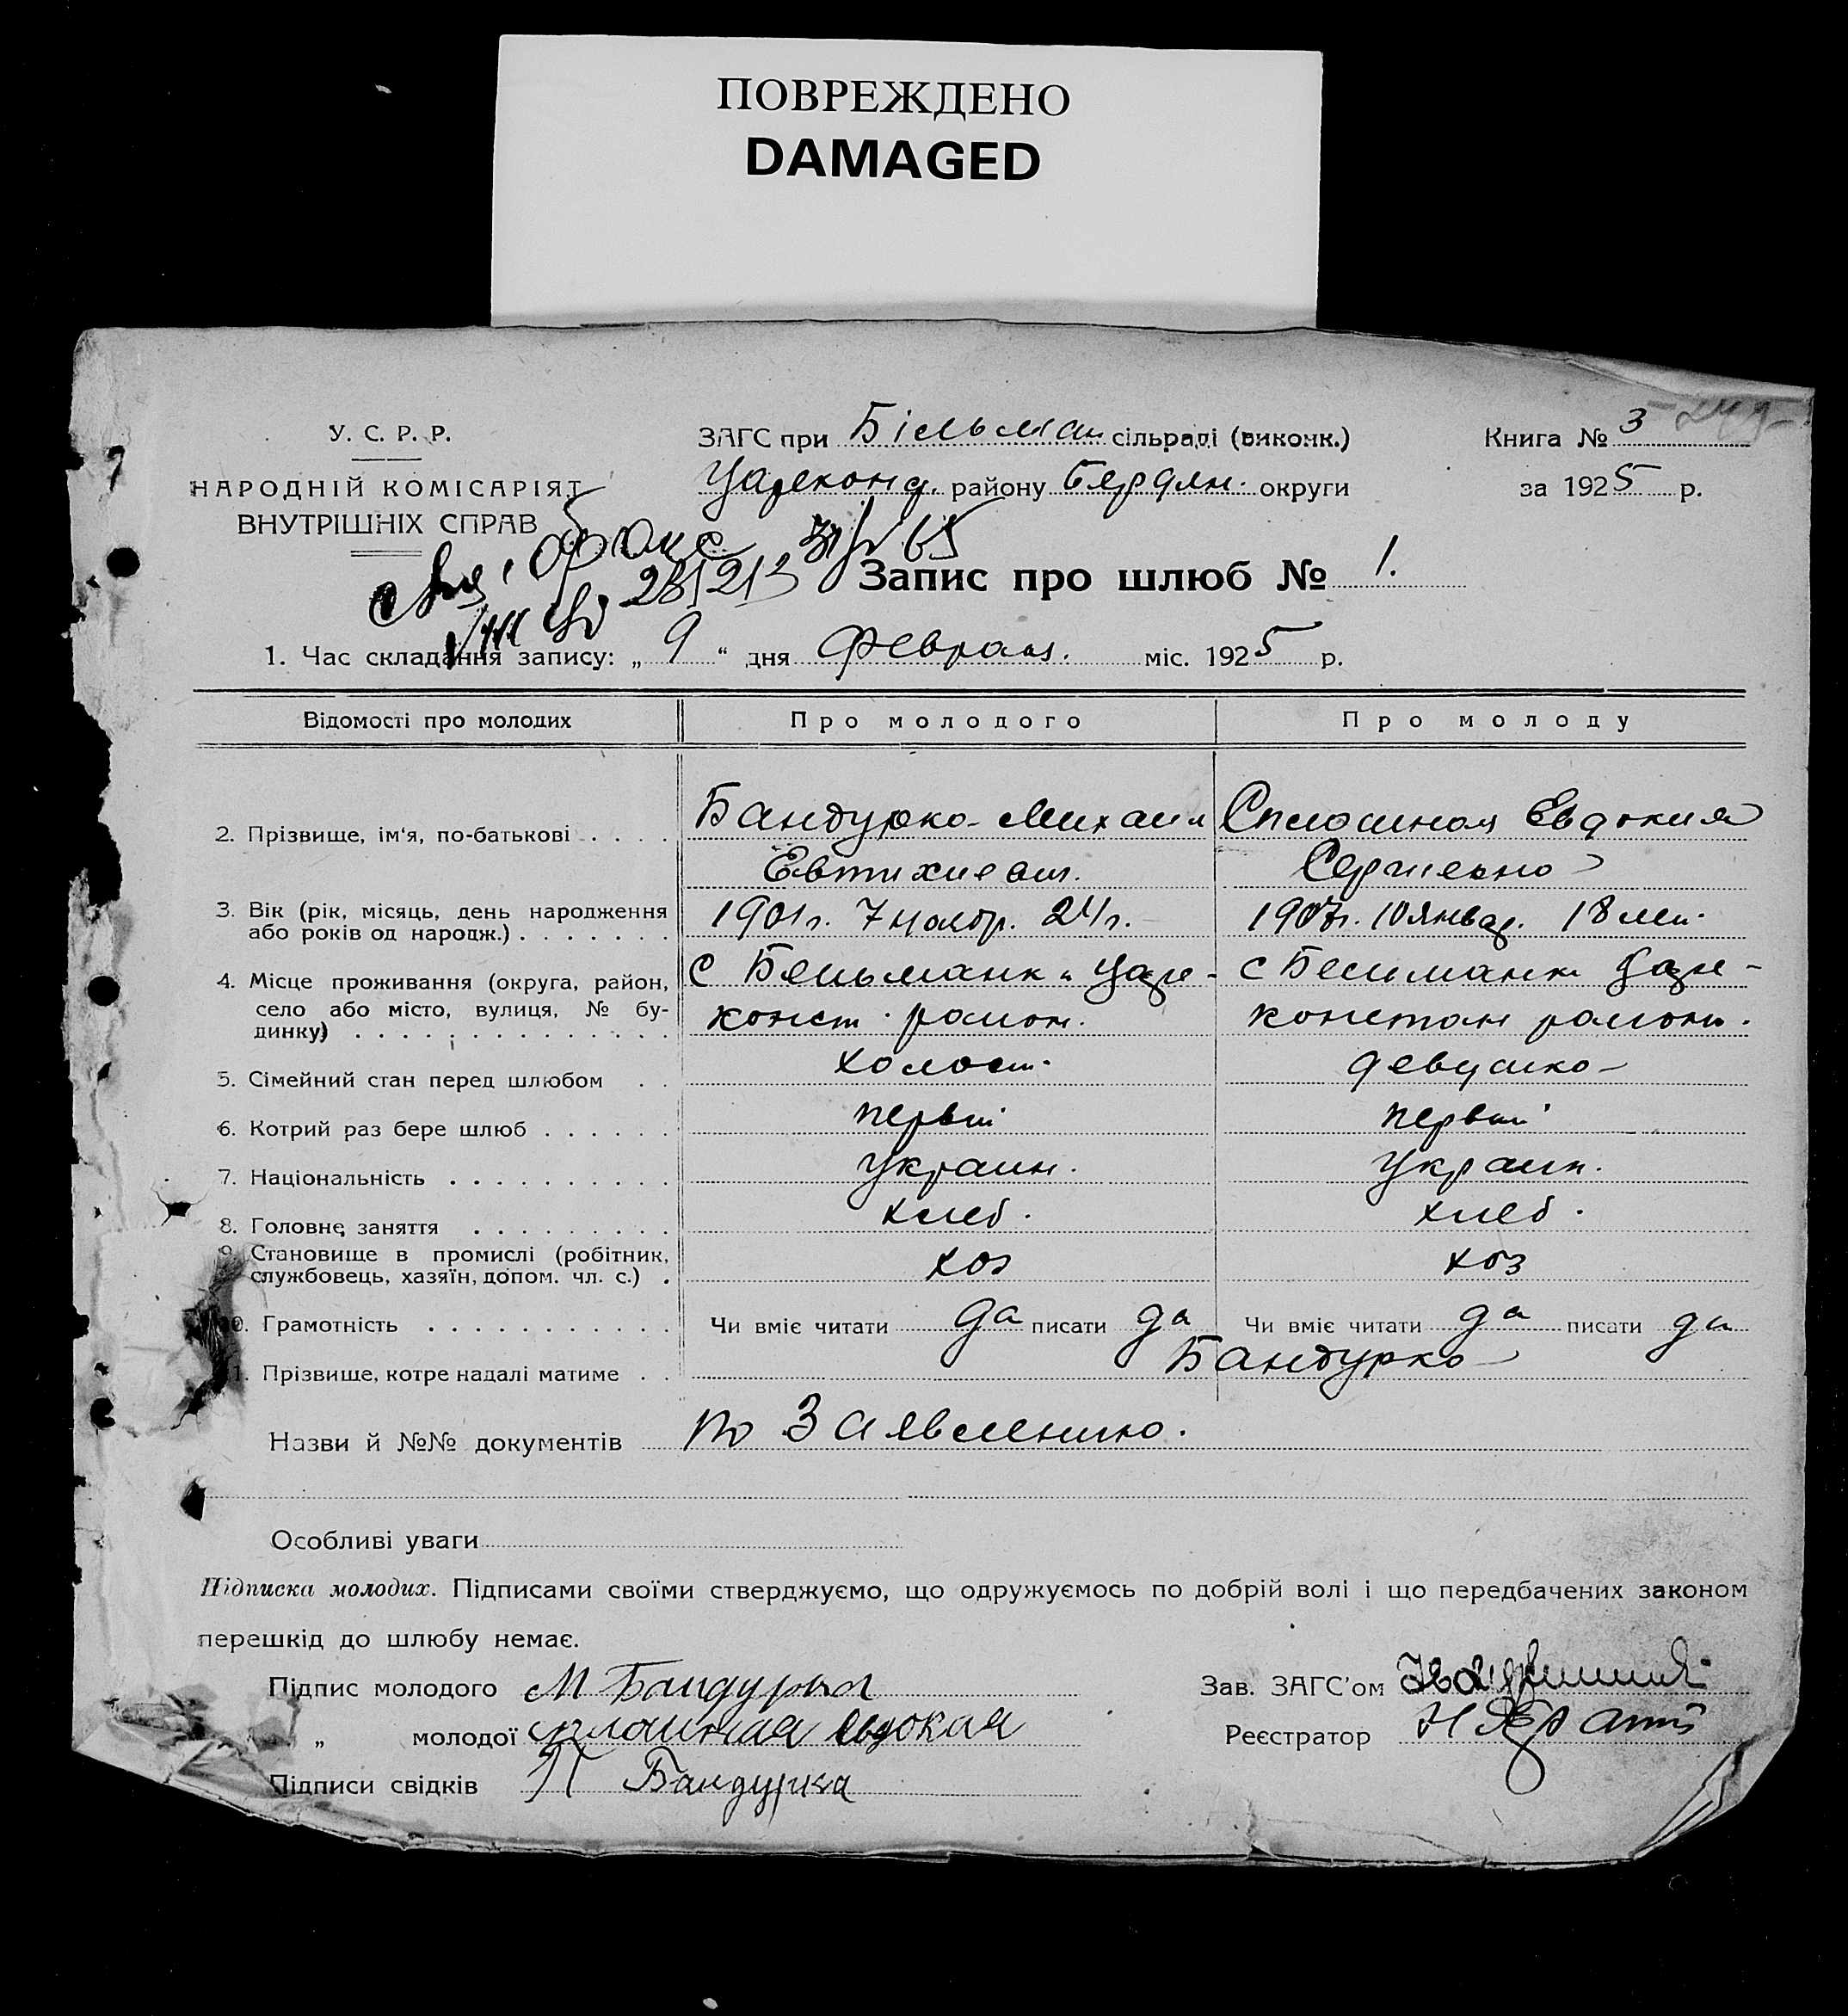 ПОВРЕЖДЕНО
DAMAGED
У. С. Р. Р.
НАРОДНІЙ КОМІСАРІЯТ
ВНУТРІШНІХ СПРАВ
ЗАГС при Більман сільраді (виконк.)
Цареконст. району Бердян. округи
Книга № 3
за 1925 р.
Запис про шлюб № 1.
1. Час складання запису: „ 9 “ дня Февраля. міс. 1925 р.
Відомості про молодих Про молодого Про молоду
2. Прізвище, ім‘я, по-батькові . . . . Бандурко Михаил Сплошная Евдокия
Евтихиевич. Сергиевна
3. Вік (рік, місяць, день народження
або років од народж.) . . . . . . . 1901 г. 7 ноябр. 24 г. 1907 г. 10 январ. 18 лет.
4. Місце проживання (округа, район, с Бельманка Царе- с Бельманка Царе-
село або місто, вулиця, № бу-
динку) . . . . . . . . . . . . . . конст. район. констан район.
5. Сімейний стан перед шлюбом . . холост. девушка
6. Котрий раз бере шлюб . . . . . . первый первый
7. Національність . . . . . . . . . . украин. украин.
8. Головне заняття . . . . . . . . . хлеб. хлеб.
9. Становище в промислі (робітник,
службовець, хазяїн, допом. чл. с.) . хоз хоз
10. Грамотність . . . . . . . . . . . Чи вміє читати да писати да Чи вміє читати да писати да
11. Прізвище, котре надалі матиме . . Бандурко
Назви й №№ документів по Заявлению.
Особливі уваги
Підписка молодих. Підписами своїми стверджуємо, що одружуємось по добрій волі і що передбачених законом
перешкід до шлюбу немає.
Підпис молодого М Бандурка
„ молодої сплошная Евдокая
Підписи свідків Бандурка
Зав. ЗАГС’ом
Реєстратор